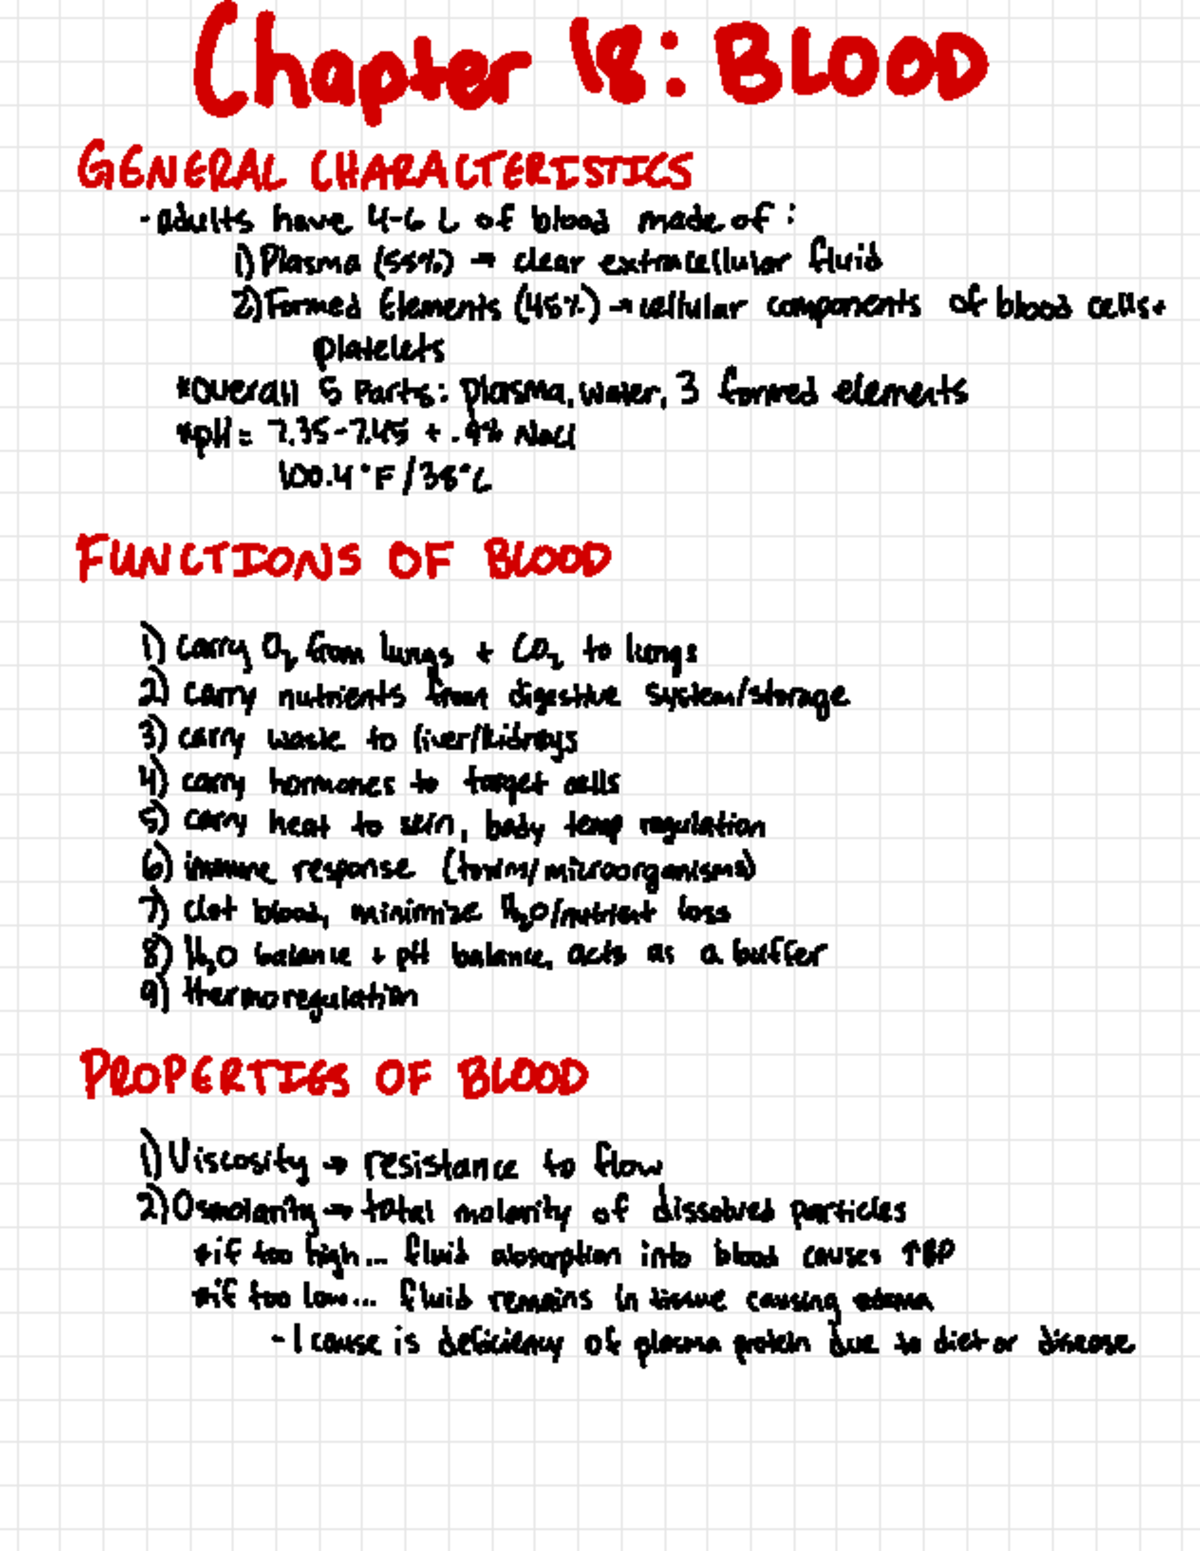 Chapter 18: BLOOD
GENERAL CHARACTERISTICS
- adults have 4-6 L of blood made of:
1) Plasma (55%) → clear extracellular fluid
2) Formed Elements (45%) → cellular components of blood cells +
platelets
*Overall 5 Parts: plasma, water, 3 formed elements
*pH = 7.35-7.45 + .9% NaCl
100.4°F/38°C
FUNCTIONS OF BLOOD
1) carry O₂ from lungs + CO₂ to lungs
2) carry nutrients from digestive system/storage
3) carry waste to liver/kidneys
4) carry hormones to target cells
5) carry heat to skin, body temp regulation
6) immune response (toxins/microorganisms)
7) clot blood, minimize H₂O/nutrient loss
8) H₂O balance + pH balance, acts as a buffer
9) thermoregulation
PROPERTIES OF BLOOD
1) Viscosity → resistance to flow
2) Osmolarity → total molarity of dissolved particles
*if too high... fluid absorption into blood causes ↑BP
*if too low... fluid remains in tissue causing edema
- 1 cause is deficiency of plasma protein due to diet or disease